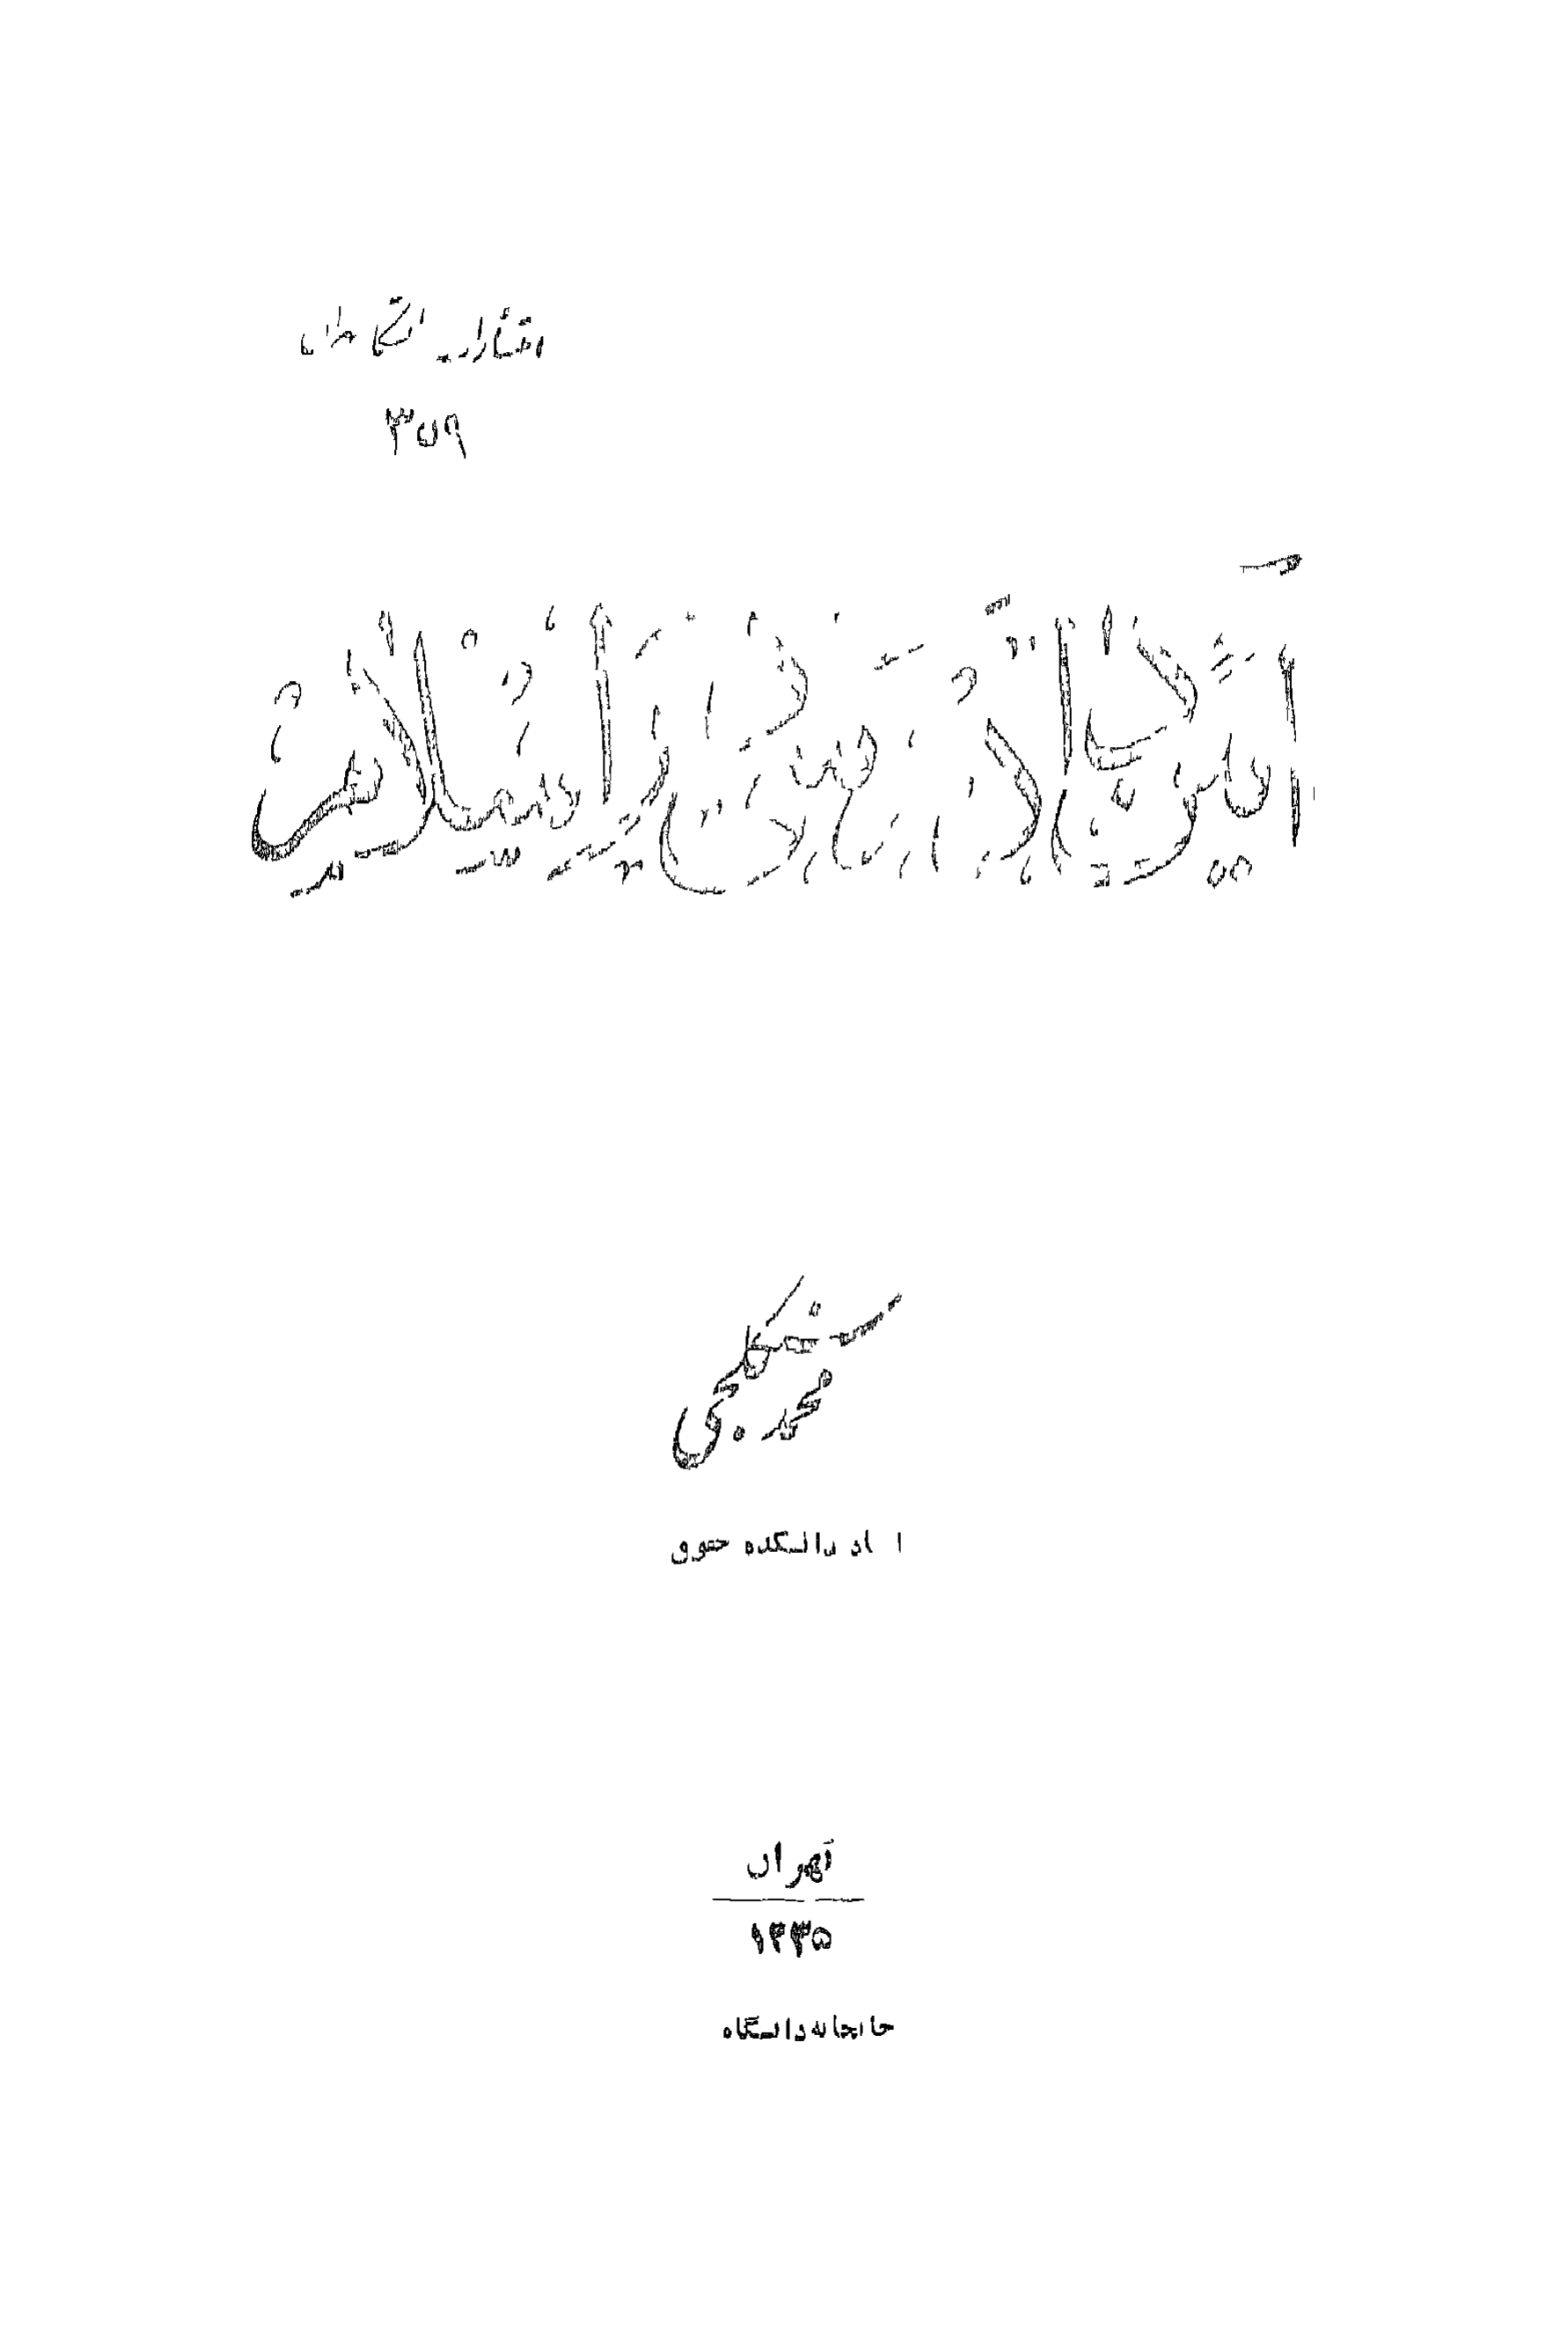 انتشارات دانشگاه تهران
۳۵۹
آیین دادرسی در اسلام
محمد سنگلجی
استاد دانشکده حقوق
تهران
۱۳۳۵
چاپخانه دانشگاه